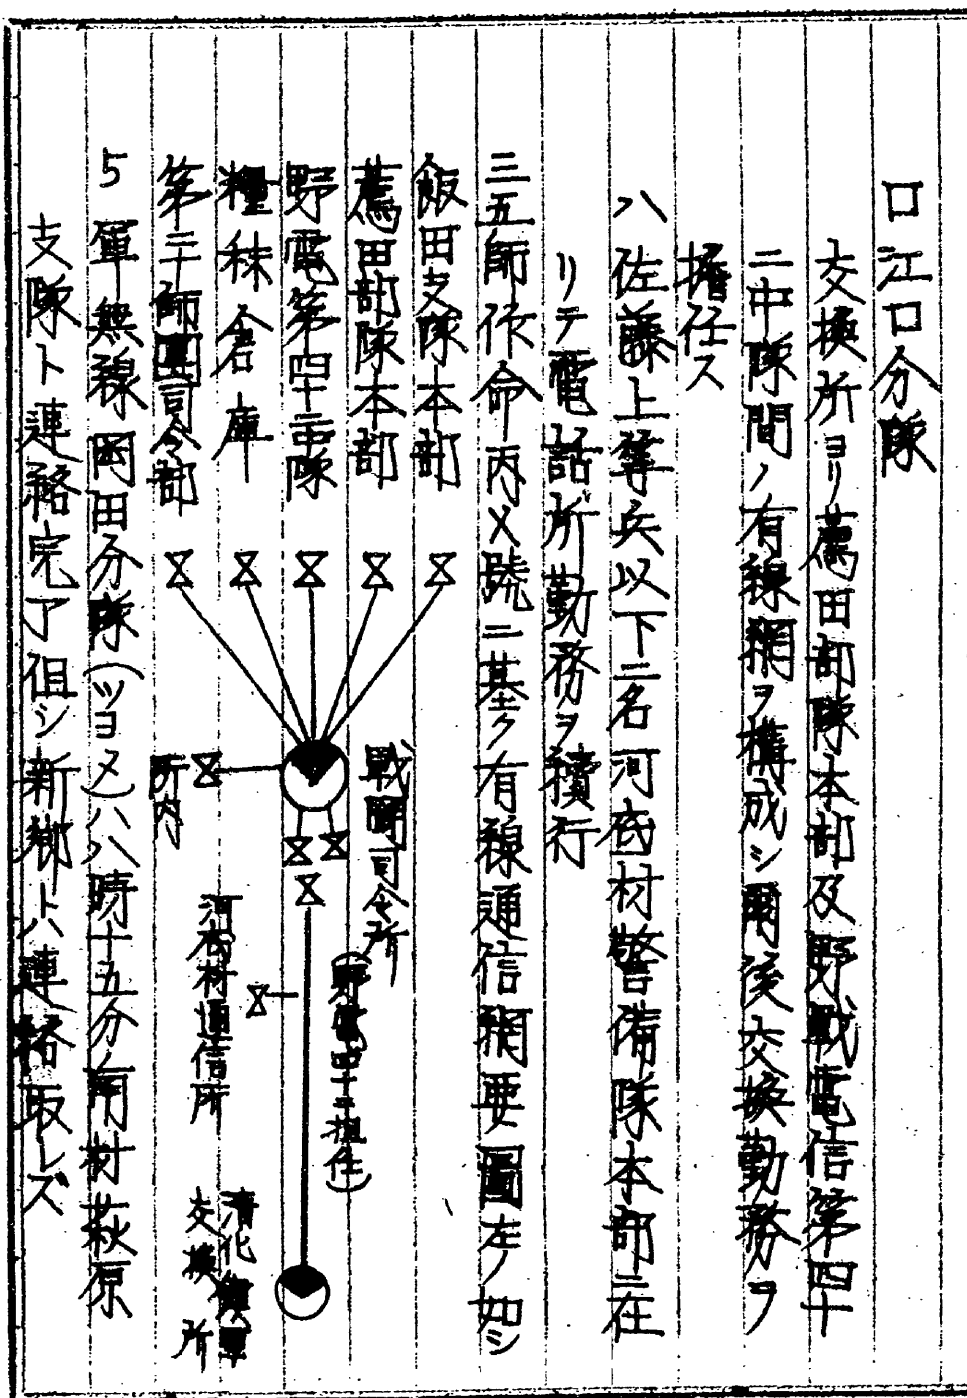 口 江口分隊
交換所ヨリ薦田部隊本部及野戰電信第四十
二中隊間ノ有線網ヲ構成シ爾後交換勤務ヲ
擔任ス
ハ 佐藤上等兵以下二名河底村警備隊本部ニ在
リテ電話所勤務ヲ續行
三五師作命丙メ號ニ基ク有線通信網要圖左ノ如シ
飯田支隊本部
薦田部隊本部
野電第四十二中隊
糧秣倉庫
第二十師團司令部
戰鬪司令所
(野電四十二担任)
所内
河底村通信所
清化鎮軍
交換所
5 軍無線岡田分隊(ツヨヌ)ハ八時十五分南村萩原
支隊ト連絡完了但シ新鄉トハ連絡取レズ